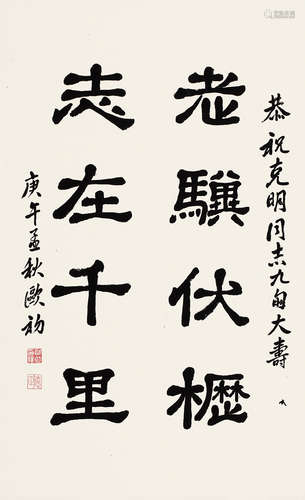 恭祝克明同志九旬大壽
老驥伏櫪
志在千里
庚午孟秋歐初